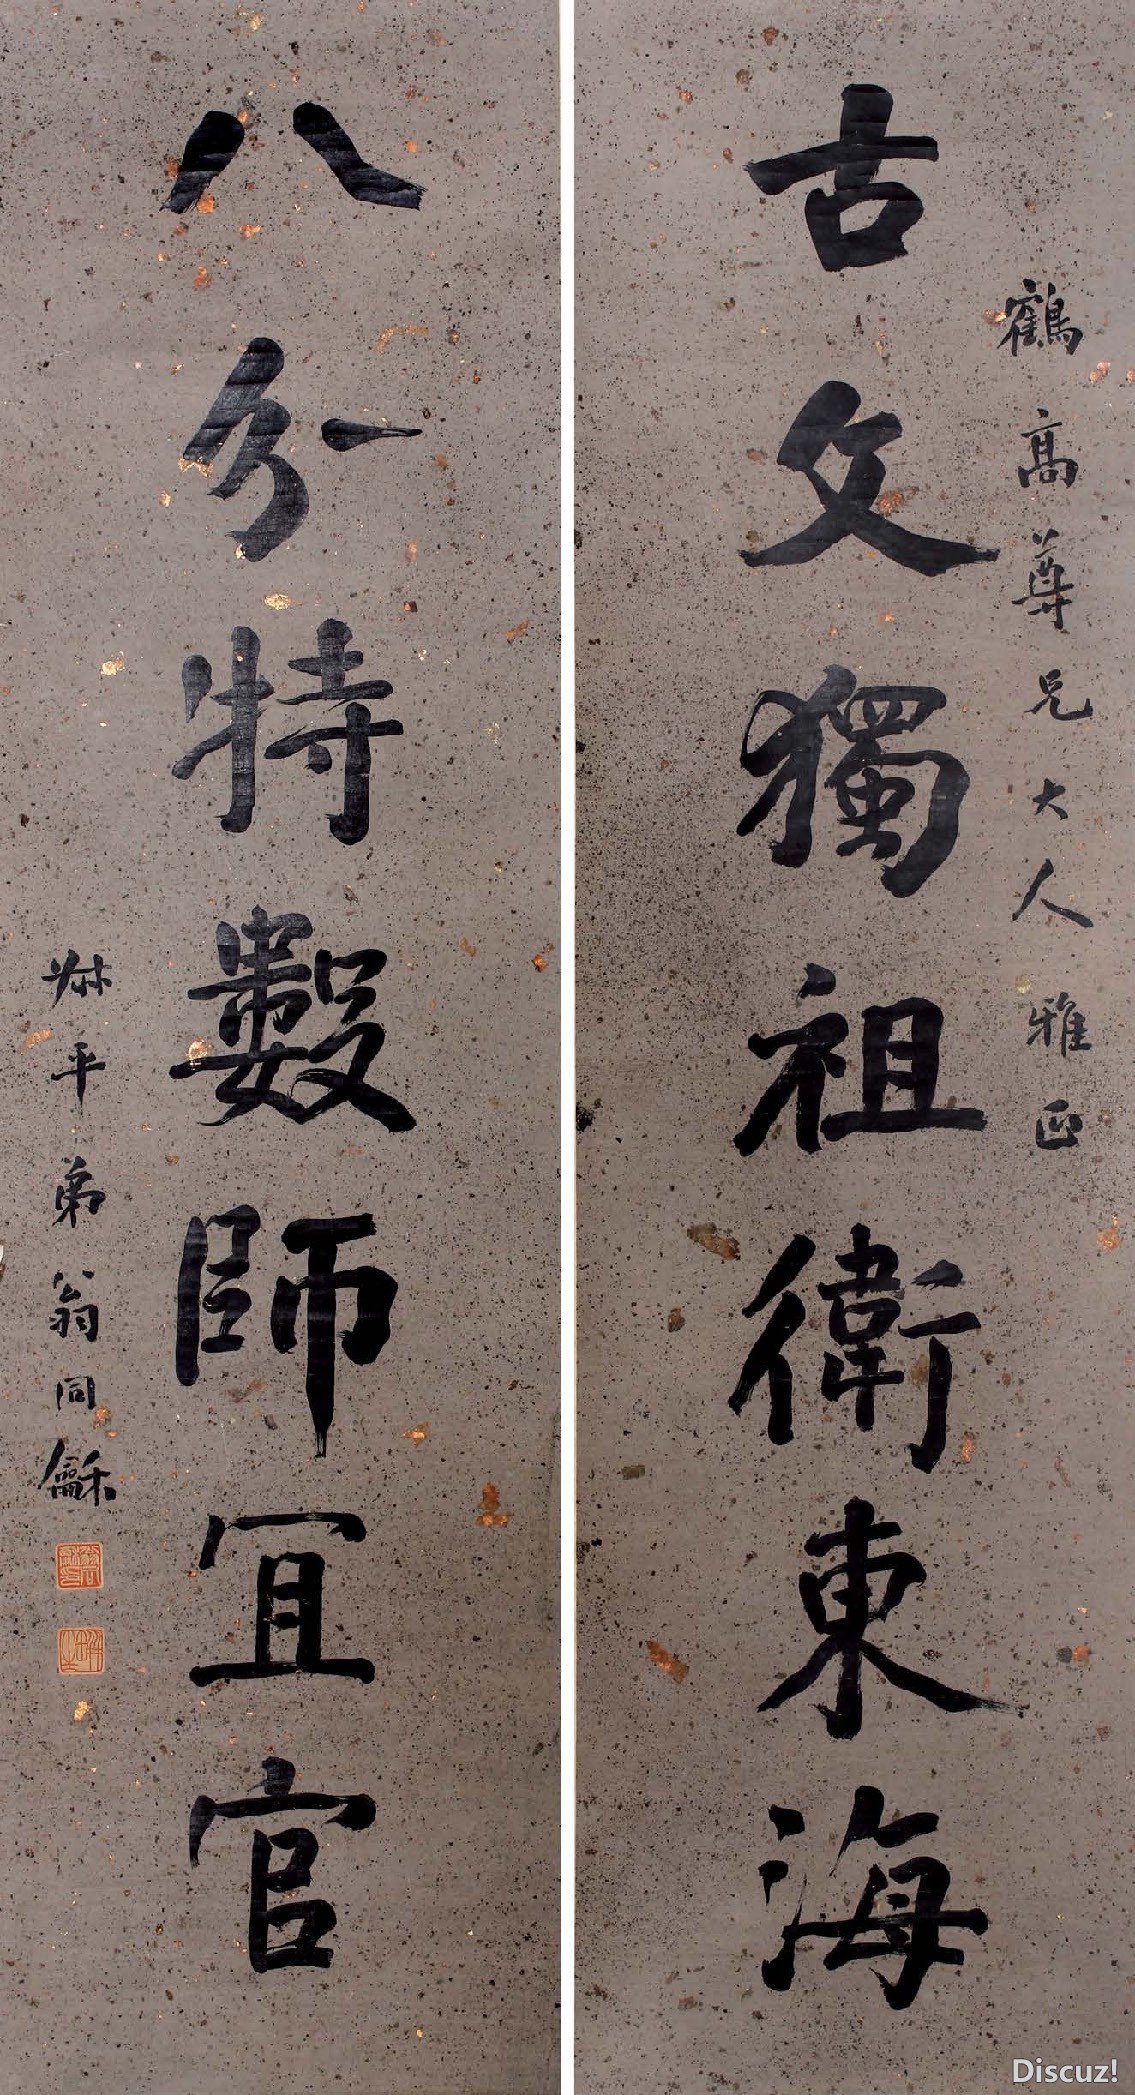 鶴高尊兄大人雅正
古文獨祖衛東海
八分特數師宜官
叔平弟翁同龢
Discuz!